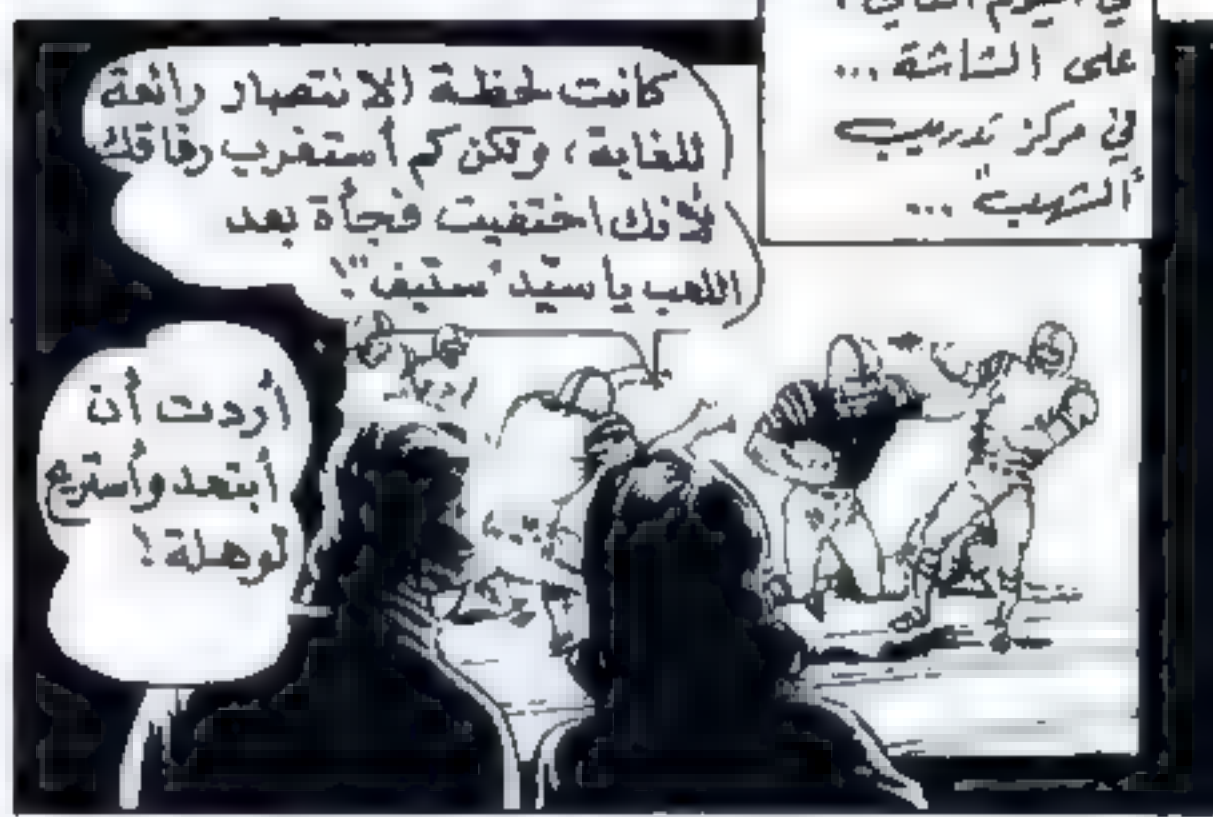 في اليوم التالي
على الشاشة ...
في مركز تدريب
"الشهب" ...
كانت لحظة الانتصار رائعة
للغاية، ولكن كم أستغرب رفاقك
لأنك اختفيت فجأة بعد
اللعب يا سيّد "ستيف"!
أردت أن
أبتعد وأستريح
لوهلة!